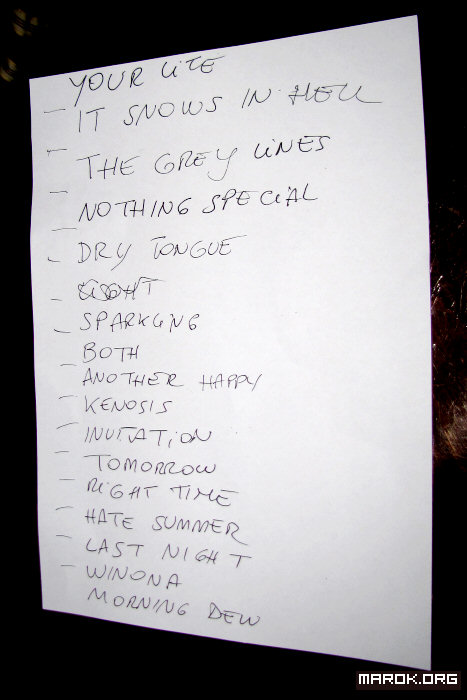 YOUR LiTE
IT SNOWS IN HELL
THE GREY LiNES
NOTHING SPECiAL
DRY TONGUE
SPARKLING
BOTH
ANOTHER HAPPY
KENOSIS
INVITATiON
TOMORROW
RiGHT TIME
HATE SUMMER
LAST NIGHT
WINONA
MORNING DEW
MAROK.ORG